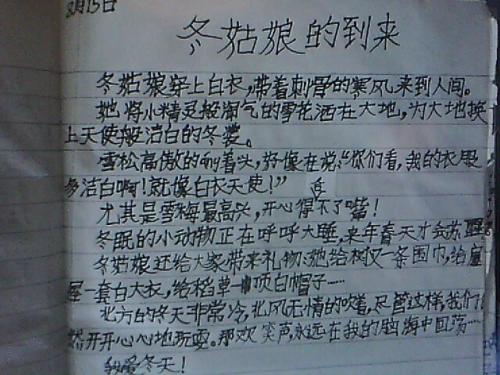 8月15日
冬姑娘的到来
冬姑娘穿上白衣,带着刺骨的寒风来到人间。
她将小精灵般淘气的雪花洒在大地,为大地换
上天使般洁白的冬装。
雪松高傲的昂着头,好像在说:“你们看,我的衣服
多洁白啊!就像白衣天使!”
尤其是雪梅最高兴,开心得合不了嘴!
冬眠的小动物正在呼呼大睡,来年春天才会苏醒
冬姑娘还给大家带来礼物:她给树仪一条围巾,给屋
一套白大衣,给稻草一顶白帽子……
北方的冬天非常冷,北风无情的吹着,尽管这样,我们
然开开心心地玩耍。那欢笑声,永远在我的脑海中回荡……
我爱冬天!